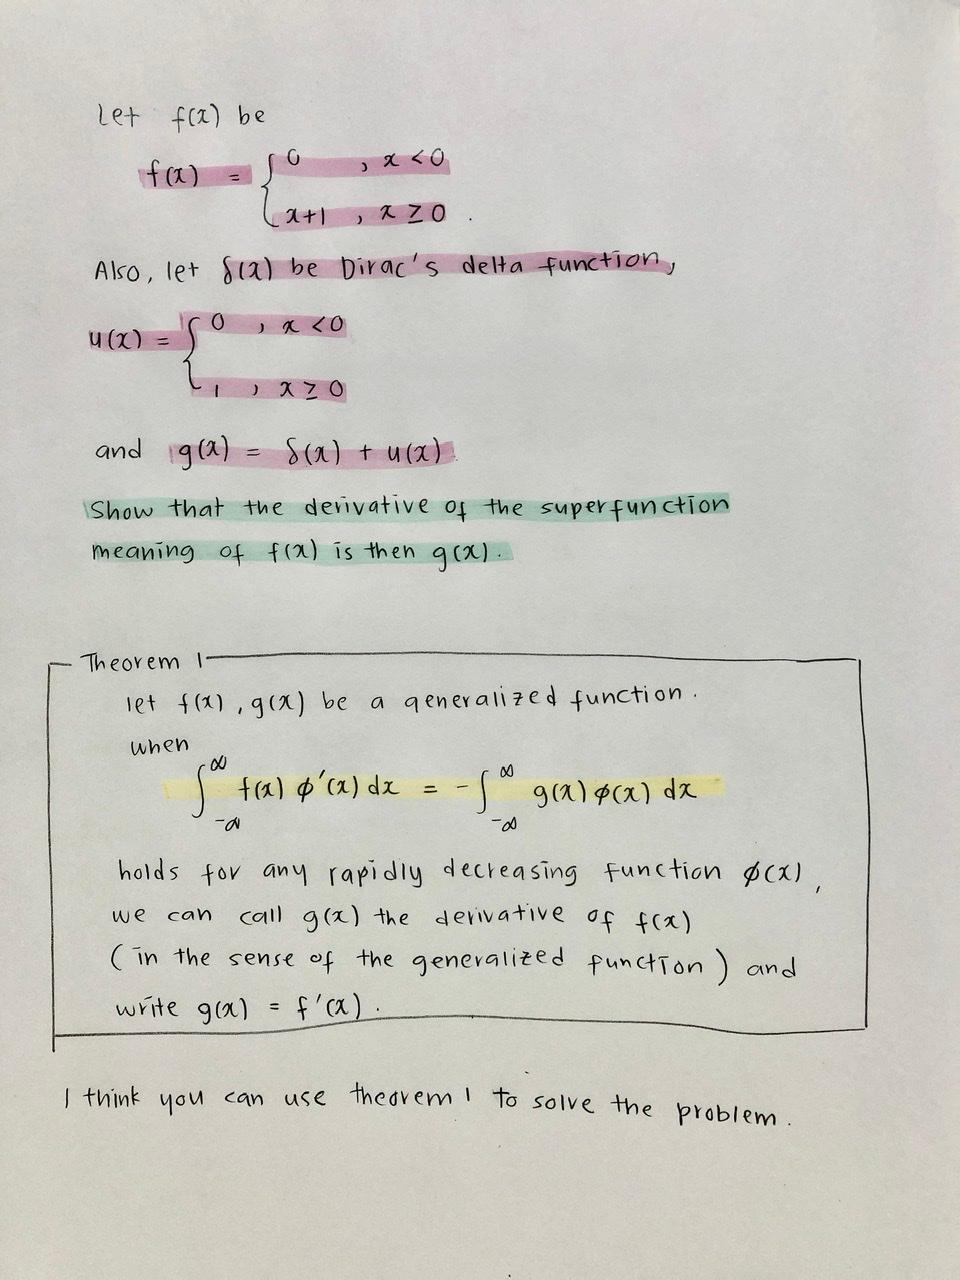 Let f(x) be
f(x) = { 0 , x < 0
x+1 , x ≥ 0 .
Also, let δ(x) be Dirac's delta function,
u(x) = { 0 , x < 0
1 , x ≥ 0
and g(x) = δ(x) + u(x).
Show that the derivative of the superfunction
meaning of f(x) is then g(x).
Theorem 1
let f(x), g(x) be a generalized function.
when
∫_{-∞}^{∞} f(x) φ'(x) dx = - ∫_{-∞}^{∞} g(x) φ(x) dx
holds for any rapidly decreasing function φ(x),
we can call g(x) the derivative of f(x)
(in the sense of the generalized function) and
write g(x) = f'(x).
I think you can use theorem 1 to solve the problem.